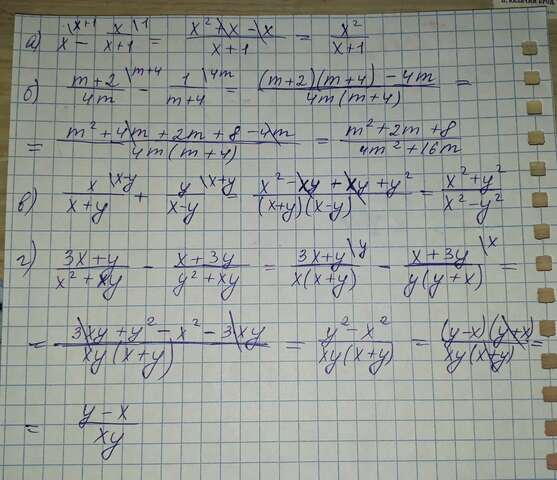 а) x^{\x+1} - x/(x+1)^{\1} = (x² + x - x)/(x+1) = x²/(x+1)
б) (m+2)/4m^{\m+4} - 1/(m+4)^{\4m} = ((m+2)(m+4) - 4m)/(4m(m+4)) =
= (m² + 4m + 2m + 8 - 4m)/(4m(m+4)) = (m² + 2m + 8)/(4m² + 16m)
в) x/(x+y)^{\x-y} + y/(x-y)^{\x+y} = (x² - xy + xy + y²)/((x+y)(x-y)) = (x² + y²)/(x² - y²)
г) (3x+y)/(x² + xy) - (x+3y)/(y² + xy) = (3x+y)/(x(x+y))^{\y} - (x+3y)/(y(y+x))^{\x} =
= (3xy + y² - x² - 3xy)/(xy(x+y)) = (y² - x²)/(xy(x+y)) = ((y-x)(y+x))/(xy(x+y)) =
= (y-x)/xy